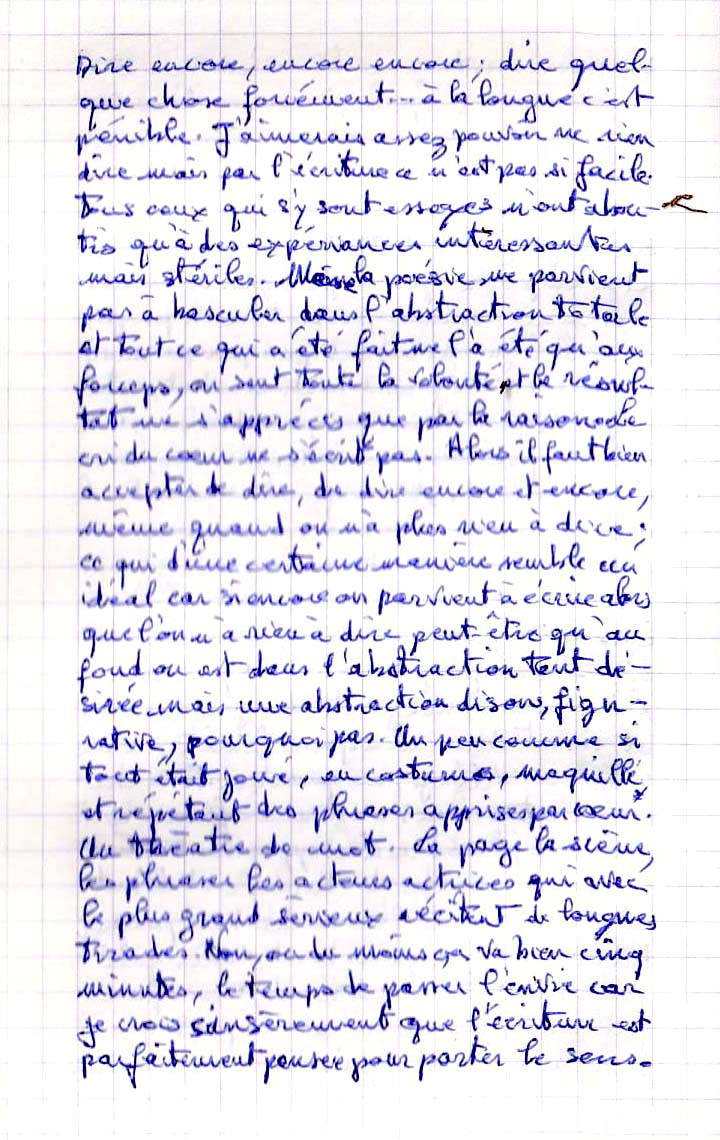 Dire encore, encore encore ; dire quel-
que chose forcément... à la longue c'est
pénible. J'aimerais assez pouvoir ne rien
dire mais par l'écriture ce n'est pas si facile.
Tous ceux qui s'y sont essayés n'ont abou-
tis qu'à des expériances intéressantes
mais stériles. Même la poésie ne parvient
pas à basculer dans l'abstraction totale
et tout ce qui a été fait ne l'a été qu'aux
forceps, on sent toute la volonté et le résul-
tat ne s'apprécis que par la raison. Le
cri du coeur ne s'écrit pas. Alors il faut bien
accepter de dire, de dire encore et encore,
même quand on n'a plus rien à dire ;
ce qui d'une certaine manière semble un
idéal car si encore on parvient à écrire alors
que l'on n'a rien à dire peut-être qu'au
fond on est dans l'abstraction tant dé-
sirée mais une abstraction disons, figu-
rative, pourquoi pas. Un peu comme si
tout était joué, en costumes, maquillé
et répétant des phrases apprises par coeur.
Un théâtre de mot. La page la scène,
les phrases les acteurs actrices qui avec
le plus grand sérieux récitent de longues
tirades. Non, ou du moins ça va bien cinq
minutes, le temps de passer l'envie car
je crois sinsèrement que l'écriture est
parfaitement pensée pour porter le sens.